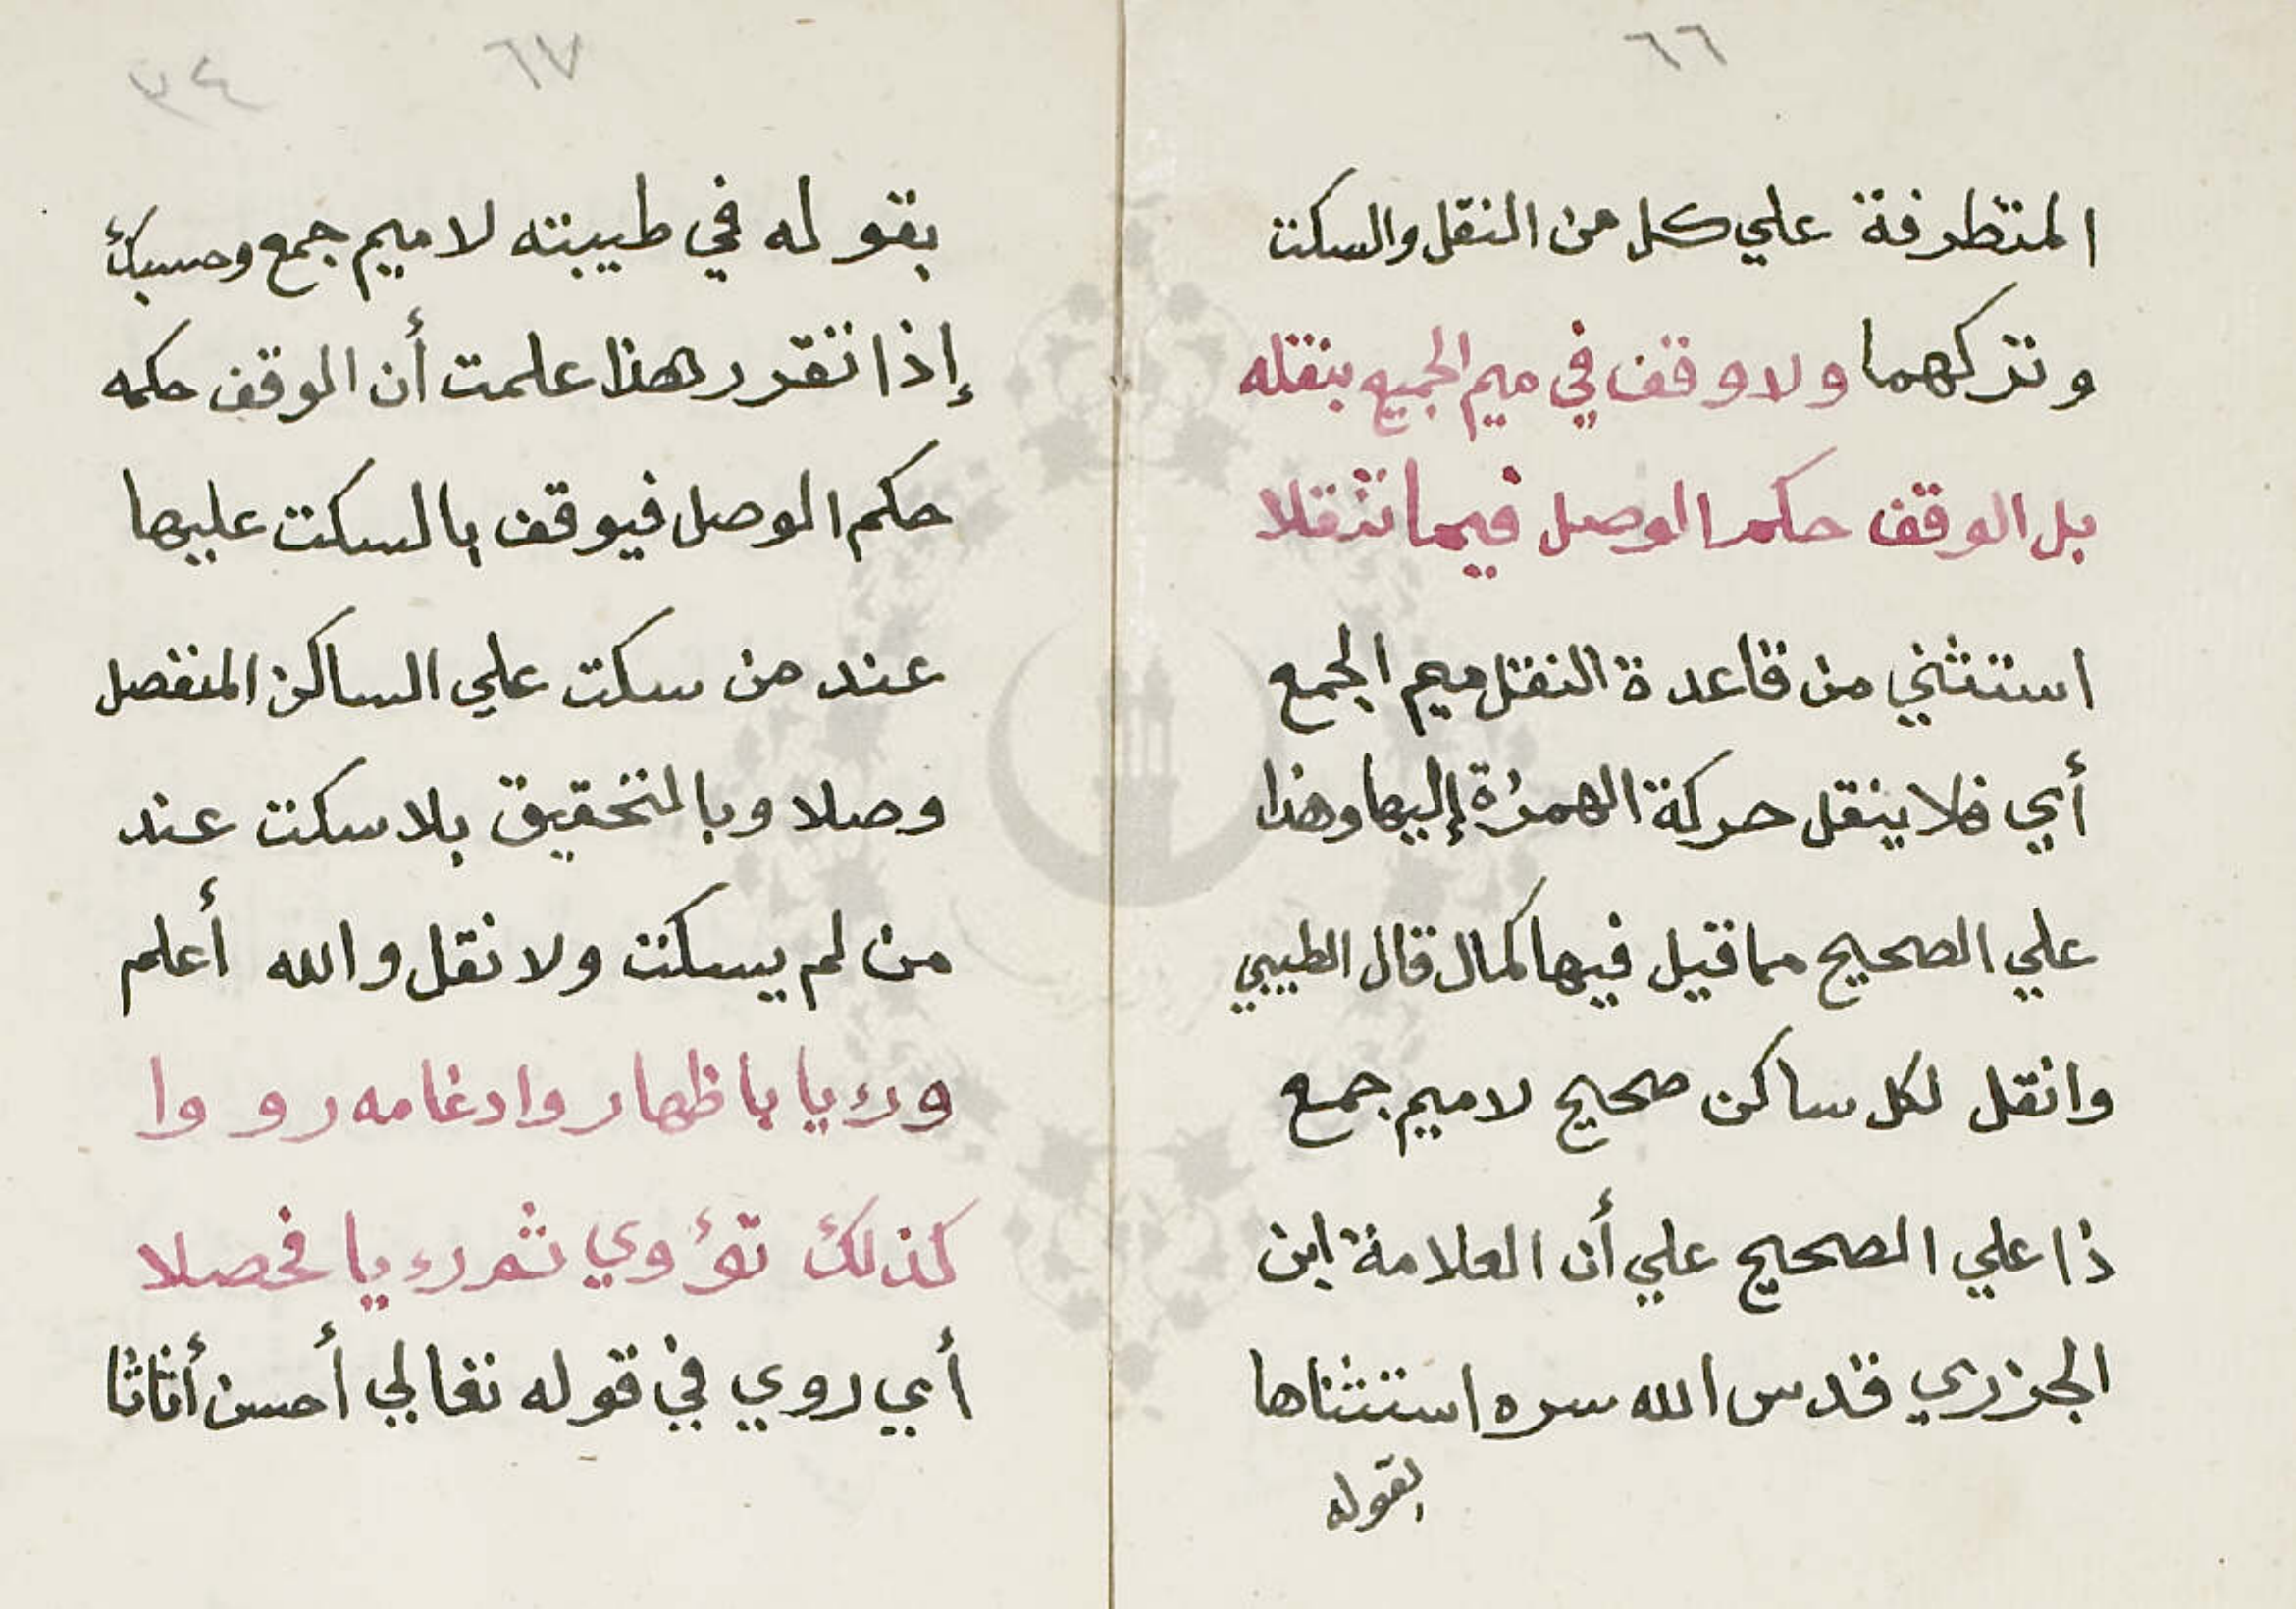 ٦٦
المتطرفة علي كل من النقل والسكت
وتركهما ولا وقف في ميم الجميع بنقله
بل الوقف حكم الوصل فيما تنقلا
استثني من قاعدة النقل ميم الجمع
أي فلا ينقل حركة الهمزة إليها وهذا
علي الصحيح مما قيل فيها كمال قال الطيبي
وانقل لكل ساكن صحيح لا ميم جمع
ذا علي الصحيح علي أن العلامة ابن
الجزري قدس الله سره استثناها
بقوله
٦٧
٣٤
بقوله في طيبته لا ميم جمع وحسبك
إذا تقرر هذا علمت أن الوقف حكمه
حكم الوصل فيوقف بالسكت عليها
عند من سكت علي الساكن المنفصل
وصلا وبالتحقيق بلا سكت عند
من لم يسكت ولا نقل والله أعلم
ورءيا باظهار وادغامه رووا
كذلك تؤوي ثم رءيا فحصلا
أي روي في قوله تعالي أحسن أثاثا